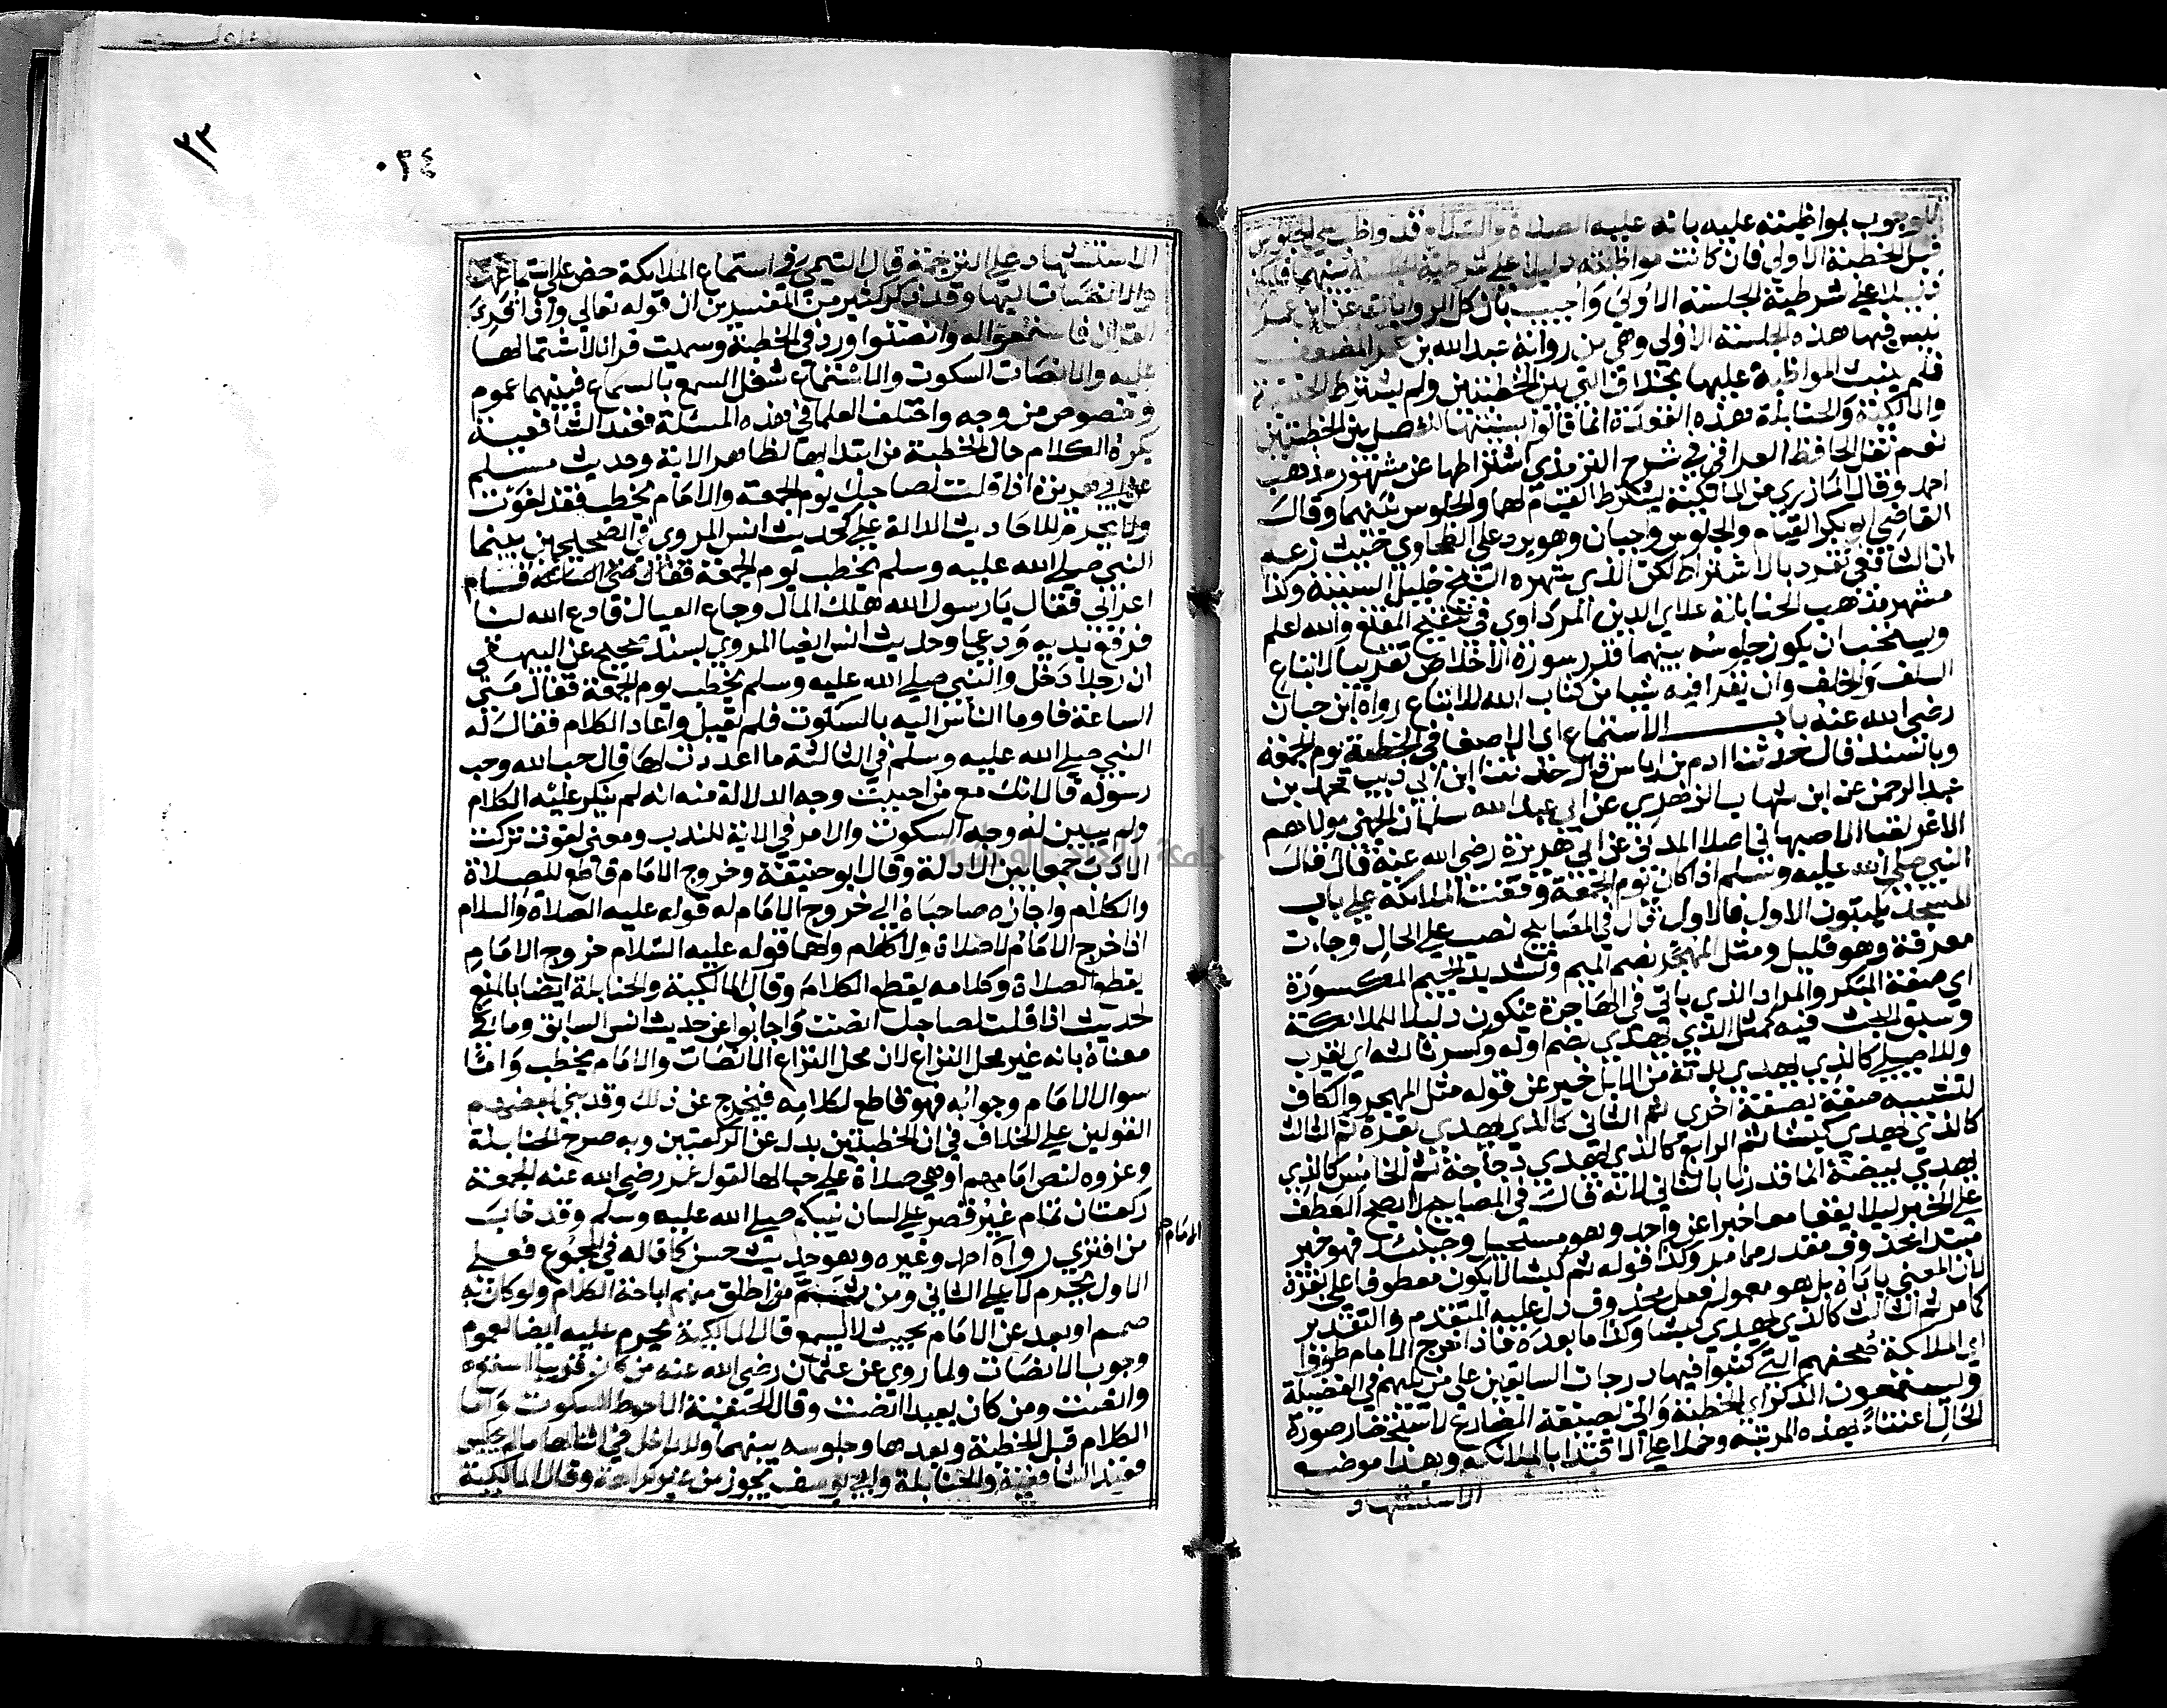 للوجوب بمواظبته عليه بانه عليه الصلاة والسلام قد واظب على الجلوس
قبل الخطبة الاولى فان كانت مواظبته دليلا على شرطية الجلسة بينهما فلتكن
دليلا على شرطية الجلسة الاولى واجيب بان كل الروايات عن ابن عمر
ليس فيها هذه الجلسة الاولى وهي من رواية عبد الله بن عمر المضعف
فلم يثبت المواظبة عليها بخلاف التي بين الخطبتين ولم يشترط الحنفية
والمالكية والحنابلة هذه القعدة انما قالوا بسنيتها للفصل بين الخطبتين
نعم نقل الحافظ العراقي في شرح الترمذي اشتراطها عن مشهور مذهب
احمد وقال المازري من المالكية يشترط القيام لها والجلوس بينهما وقال
القاضي ابو بكر القيام والجلوس واجبان وهو يرد على الطحاوي حيث زعم
ان الشافعي تفرد بالاشتراط لكن الذي شهره الشيخ خليل السنية وكذا
مشهر مذهب الحنابلة علاي الدين المرداوي في تنقيح المقنع والله اعلم
ويستحب ان يكون جلوسه بينهما قدر سورة الاخلاص تقريبا لاتباع
السلف والخلف وان يقرا فيه شيا من كتاب الله للاتباع رواه ابن حبان
رضي الله عنه باب الاستماع اي الاصغا في الخطبة يوم الجمعة
وبالسند قال حدثنا ادم بن اياس قال حدثنا ابن ابي ذيب محمد بن
عبد الرحمن عن ابن شهاب الزهري عن ابي عبد الله سلمان الجهني مولاهم
الاغر لقبا الاصبهاني اصلا المدني عن ابي هريرة رضي الله عنه قال قال
النبي صلى الله عليه وسلم اذا كان يوم الجمعة وقفت الملائكة على باب
المسجد يكتبون الاول فالاول قال في المصابيح نصب على الحال وجات
معرفة وهو قليل ومثل المهجر بضم الميم وتشديد الجيم المكسورة
اي صفة المبكر والمراد الذي ياتي في الهاجرة فيكون دليلا للمالكية
وسبق البحث فيه كمثل الذي يهدي بضم اوله وكسر ثالثه اي يقرب
وللاصيلي كالذي يهدي بدنة من الابل خبر عن قوله مثل المهجر والكاف
لتشبيه صفة بصفة اخرى ثم الثاني كالذي يهدي بقرة ثم الثالث
كالذي يهدي كبشا ثم الرابع كالذي يهدي دجاجة ثم الخامس كالذي
يهدي بيضة انما قدرنا بالثاني لانه قال في المصابيح لا يصح العطف
على الخبر ليلا يقعا معا خبرا عن واحد وهو مستحيل وحينئذ فهو خبر
مبتدا محذوف مقدر مما مر وكذا قوله ثم كبشا لا يكون معطوفا على بقرة
لان المعنى ياباه بل هو معمول فعل محذوف دل عليه المتقدم والتقدير
كما مر ثم الثالث كالذي يهدي كبشا وكذا ما بعده فاذا خرج الامام طووا
اي الملائكة صحفهم التي كتبوا فيها درجات السابقين على من يليهم في الفضيلة
ويستمعون الذكر اي الخطبة واتى بصيغة المضارع لاستحضار صورة
الحال اعتناء بهذه المرتبة وحملا على الاقتدا بالملائكة وهذا موضع
الاستشهاد
٣٣
٠٣٤
الاستشهاد على الترجمة قال التيمي في استماع الملائكة حض على استماعها
والانصات اليها وقد ذكر كثير من المفسرين ان قوله تعالى واذا قرئ
القران فاستمعوا له وانصتوا ورد في الخطبة وسميت قرانا لاشتمالها
عليه والانصات السكوت والاستماع شغل السمع بالسماع فبينهما عموم
وخصوص من وجه واختلف العلما في هذه المسئلة فعند الشافعية
يكره الكلام حال الخطبة من ابتدايها لظاهر الاية وحديث مسلم
عن ابي هريرة اذا قلت لصاحبك يوم الجمعة والامام يخطب فقد لغوت
ولا يحرم للاحاديث الدالة على كحديث انس المروي في الصحيحين بينما
النبي صلى الله عليه وسلم يخطب يوم الجمعة فقال متى الساعة قام
اعرابي فقال يا رسول الله هلك المال وجاع العيال فادع الله لنا
فرفع يديه ودعى وحديث انس ايضا المروي بسند صحيح عن البيهقي
ان رجلا دخل والنبي صلى الله عليه وسلم يخطب يوم الجمعة فقال متى
الساعة فاوما الناس اليه بالسكوت فلم يقبل واعاد الكلام فقال له
النبي صلى الله عليه وسلم في الثالثة ما اعددت لها قال حب الله وحب
رسوله قال انك مع من احببت وجه الدلالة منه انه لم ينكر عليه الكلام
ولم يبين له وجه السكوت والامر في الاية للندب ومعنى لغوت تركت
الادب جمعا بين الادلة وقال ابو حنيفة وخروج الامام قاطع للصلاة
والكلام واجازه صاحباه الى خروج الامام له قوله عليه الصلاة والسلام
اذا خرج الامام لا صلاة ولا كلام ولهما قوله عليه السلام خروج الامام
يقطع الصلاة وكلامه يقطع الكلام وقال المالكية والحنابلة ايضا بالمنع
لحديث اذا قلت لصاحبك انصت واجابوا عن حديث انس السابق وما في
معناه بانه غير محل النزاع لان محل النزاع الانصات والامام يخطب واما
سوال الامام وجوابه فهو قاطع لكلامه فيخرج عن ذلك وقد بنى بعضهم
القولين على الخلاف في ان الخطبتين بدل عن الركعتين وبه صرح الحنابلة
وعزوه لنص امامهم اوهي صلاة على حيالها لقول عمر رضي الله عنه الجمعة
ركعتان تمام غير قصر على لسان نبيكم صلى الله عليه وسلم وقد خاب
من افترى رواه احمد وغيره وهو حديث حسن كما قاله في المجموع فعلى
الامام
الاول يحرم لا على الثاني ومن ثم من اطلق منهم اباحة الكلام ولو كان به
صمم او بعد عن الامام بحيث لا يسمع قال المالكية يحرم عليه ايضا لعموم
وجوب الانصات ولما روي عن عثمان رضي الله عنه من كان قريبا استمع
وانصت ومن كان بعيدا انصت وقال الحنفية الاحوط السكوت واما
الكلام قبل الخطبة وبعدها وجلوسه بينهما وللداخل في اثنائها ما لم يجلس
فعند الشافعية والحنابلة وابي يوسف يجوز من غير كراهة وقال المالكية